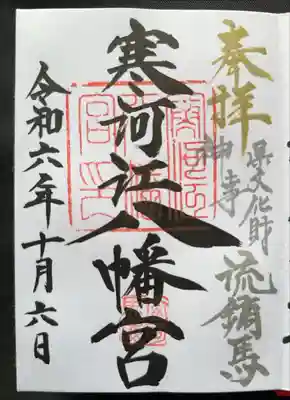 奉拝
県文化財
流鏑馬
神事
寒河江八幡宮
令和六年十月六日